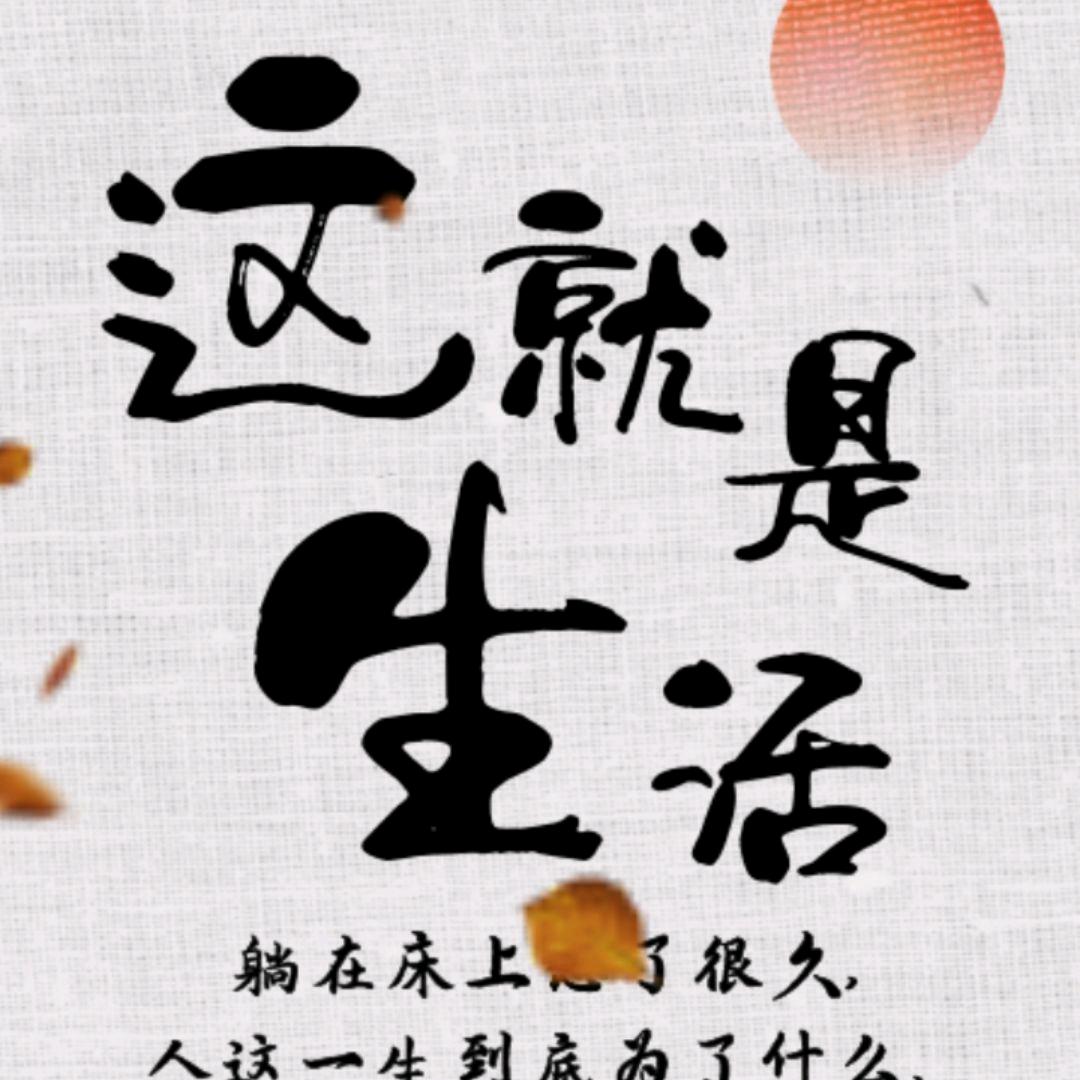 这就是
生活
躺在床上了很久,
人这一生到底为了什么,